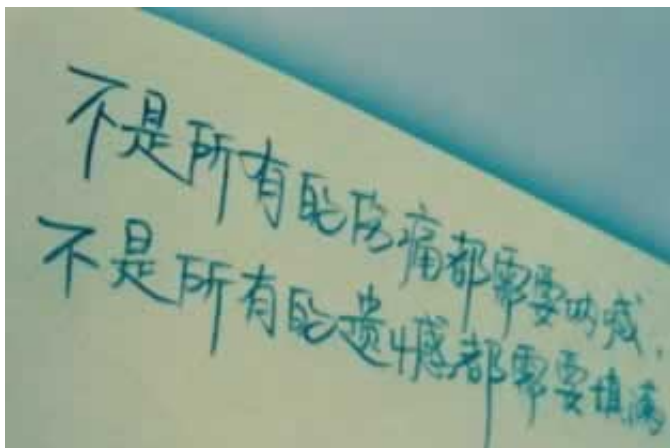 不是所有的疼痛都需要呐喊，
不是所有的遗憾都需要填满